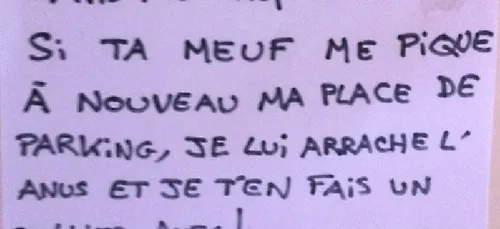 Si TA MEUF ME PiQUE
À NOUVEAU MA PLACE DE
PARKiNG, JE LUi ARRACHE L'
ANUS ET JE T'EN FAiS UN